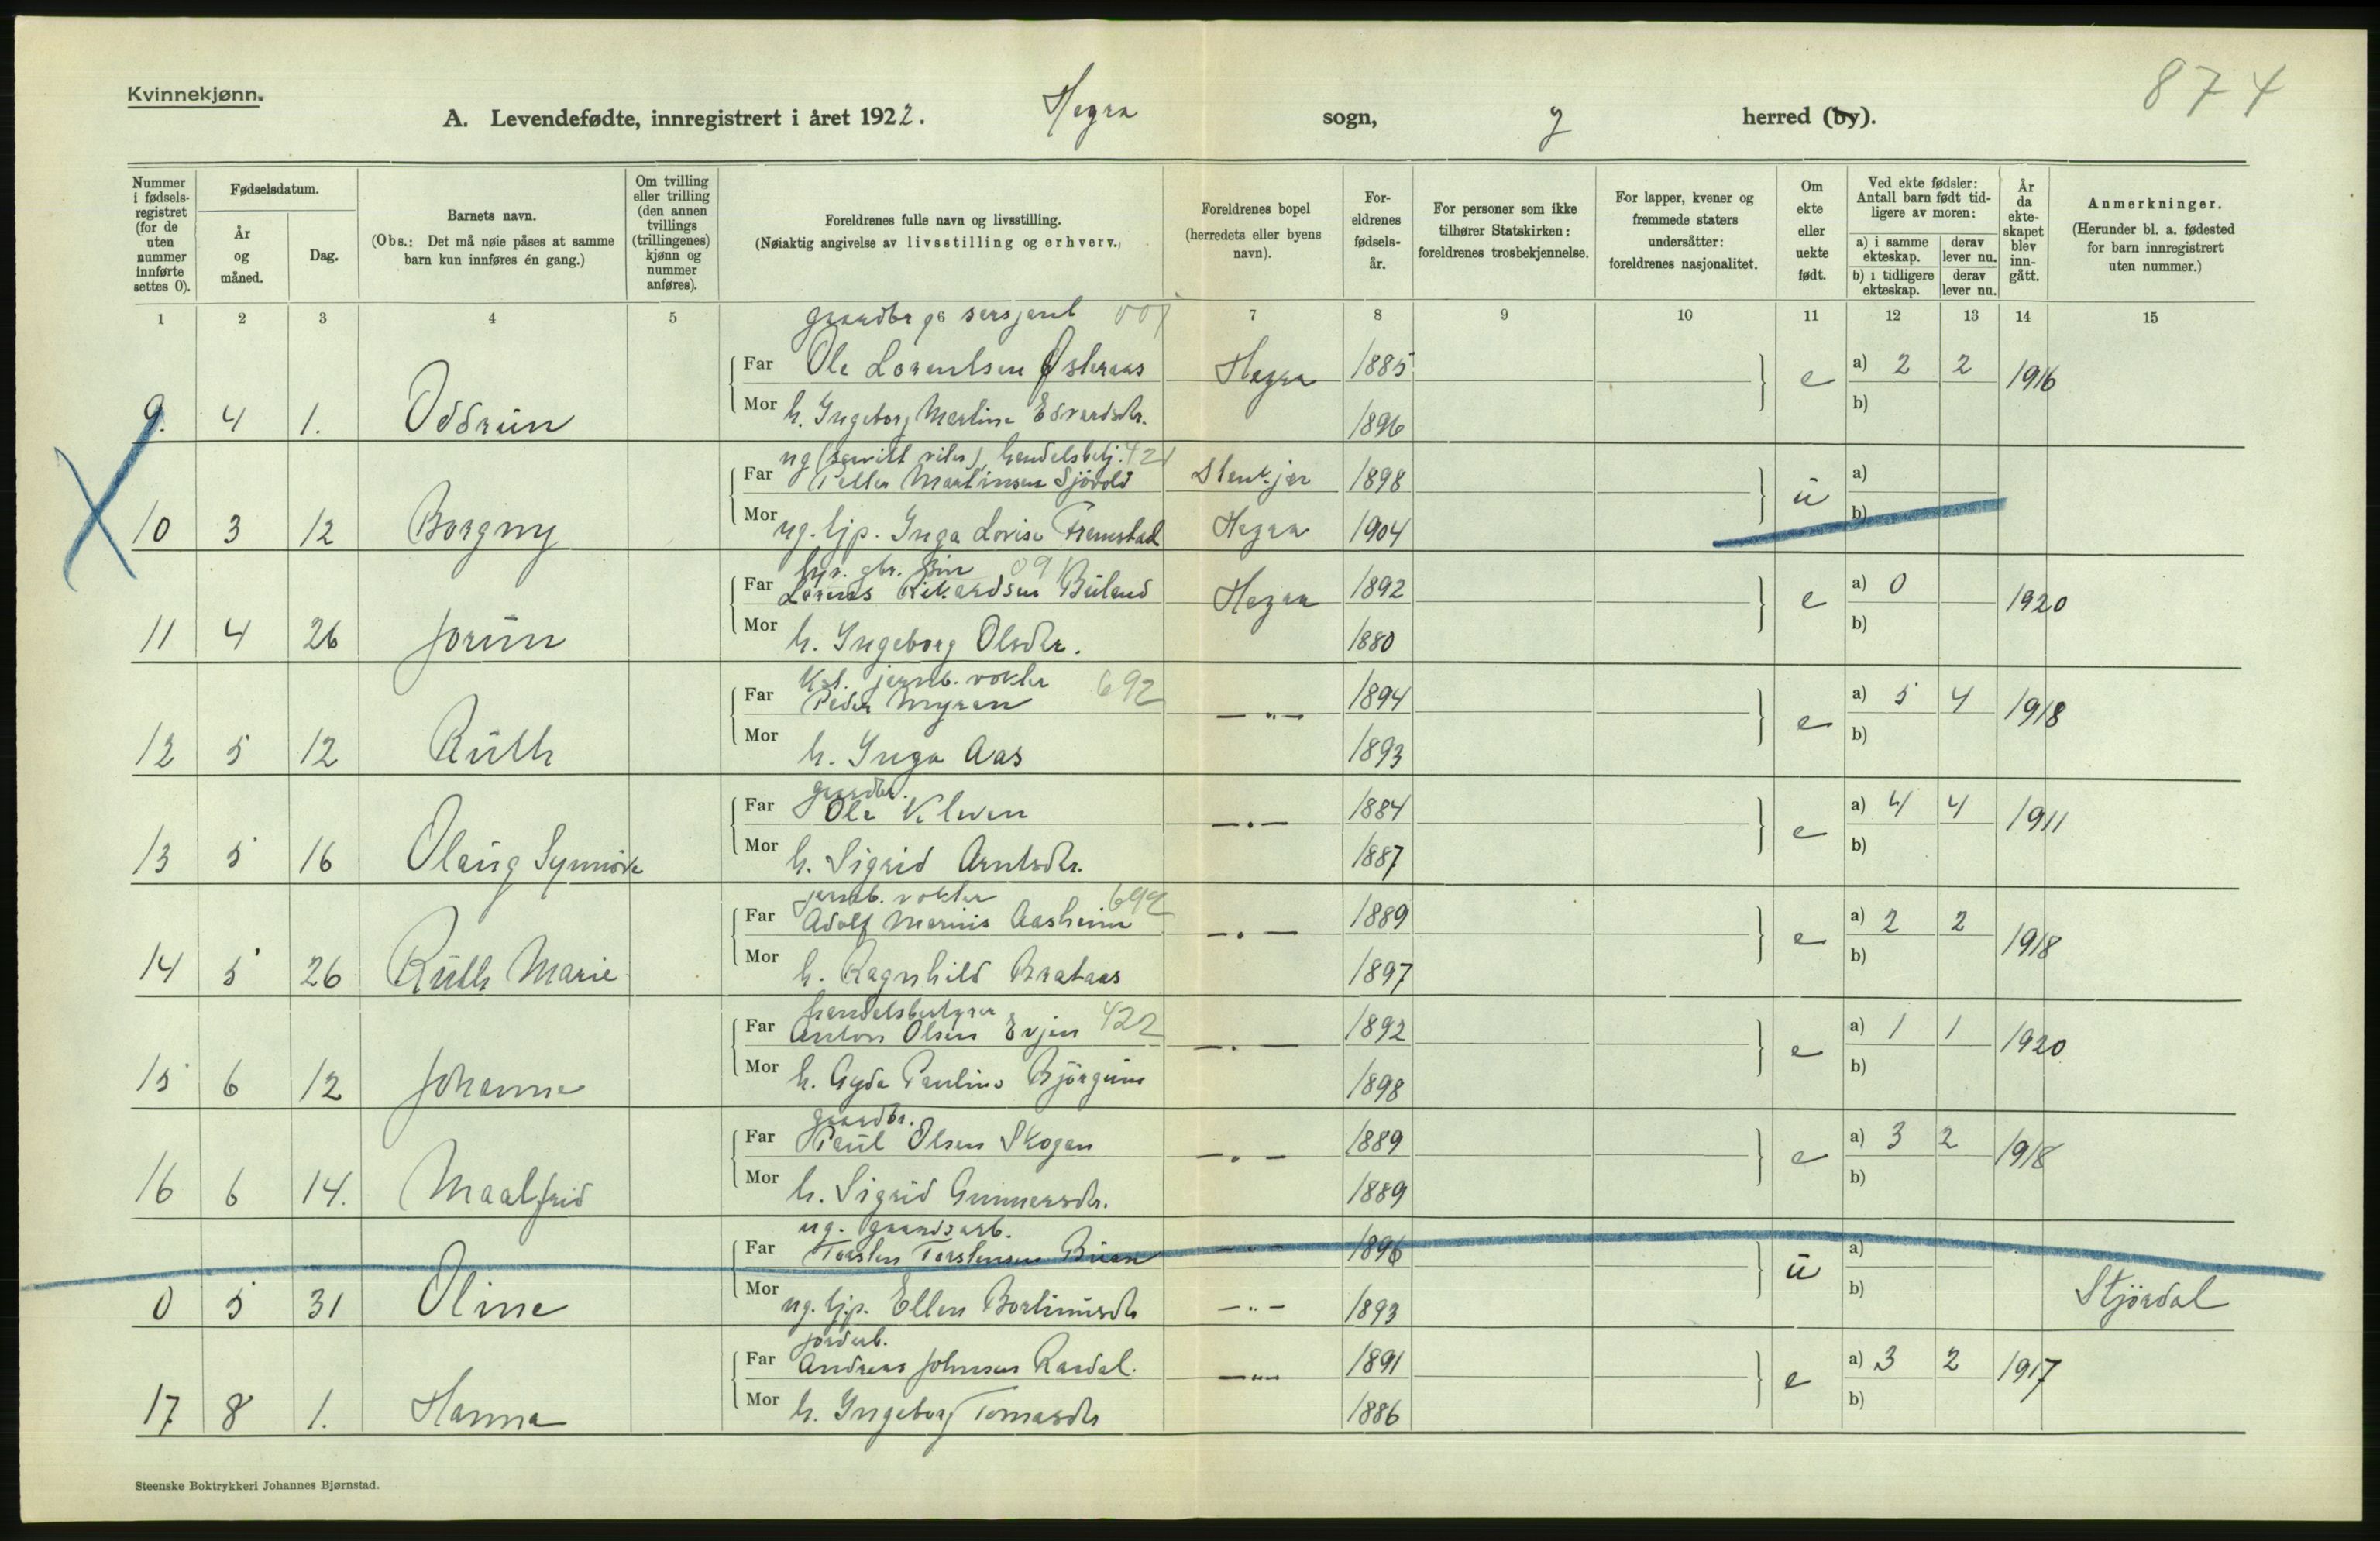 874
Kvinnekjønn.
A. Levendefødte, innregistrert i året 1922. Hegra sogn, herred (by).
Nummer i fødsels-registret (for de uten nummer innførte settes 0).
Fødselsdatum.
År og måned.
Dag.
Barnets navn.
(Obs.: Det må nøie påses at samme barn kun innføres én gang.)
Om tvilling eller trilling (den annen tvillings (trillingenes) kjønn og nummer anføres).
Foreldrenes fulle navn og livsstilling.
(Nøiaktig angivelse av livsstilling og erhverv.)
Foreldrenes bopel (herredets eller byens navn).
For-eldrenes fødsels-år.
For personer som ikke tilhører Statskirken: foreldrenes trosbekjennelse.
For lapper, kvener og fremmede staters undersåtter: foreldrenes nasjonalitet.
Om ekte eller uekte født.
Ved ekte fødsler: Antall barn født tid-ligere av moren:
a) i samme ekteskap.
derav lever nu.
b) i tidligere ekteskap.
derav lever nu.
År da ekte-skapet blev inn-gått.
Anmerkninger.
(Herunder bl. a. fødested for barn innregistrert uten nummer.)
1 2 3 4 5 7 8 9 10 11 12 13 14 15
gaardbr og sersjent
Far Ole Lorentsen Østeraas Hegra 1885 e a) 2 2 1916
9. 4 1. Oddrun
Mor h. Ingeborg Martine Edvardsdtr. 1896 b)
ug handelsbetj. 421
Far Petter Martinsen Sjövold Stenkjær 1898 u a)
10 3 12 Borgny
Mor ug. tjp. Inga Lovise Fremstad Hegra 1904 b)
gbr. 09
Far Rikardsen Buland Hegra 1892 e a) 0 1920
11 4 26 Jorun
Mor h. Ingeborg Olsdtr. 1880 b)
jernb. vokter 692
Far Peder Myran 1894 e a) 5 4 1918
12 5 12 Ruth
Mor h. Inga Aas 1893 b)
gaardbr.
Far Ole Kleven 1884 e a) 4 4 1911
13 5 16 Olaug Synnöve
Mor h. Sigrid Arntsdtr. 1887 b)
jernb. vokter 692
Far Adolf Marius Aasheim 1889 e a) 2 2 1918
14 5 26 Ruth Marie
Mor h. Ragnhild Brataas 1897 b)
handelsbestyrer 422
Far Anton Olsen Evjen 1892 e a) 1 1 1920
15 6 12 Johanna
Mor h. Gyda Pauline Björgum 1898 b)
gaardbr.
Far Paul Olsen Skogan 1889 e a) 3 2 1918
16 6 14. Maalfrid
Mor h. Sigrid Gunnarsdtr. 1889 b)
ug. gaardsarb.
Far Torsten Torstensen Buan 1896 u a)
0 5 31 Oline Stjördal
Mor ug. tjp. Ellen Bortinusdtr 1893 b)
jordarb.
Far Andreas Johnsen Raadal. 1891 e a) 3 2 1917
17 8 1. Hanna
Mor h. Ingeborg Tomasdtr 1886 b)
Steenske Boktrykkeri Johannes Bjørnstad.